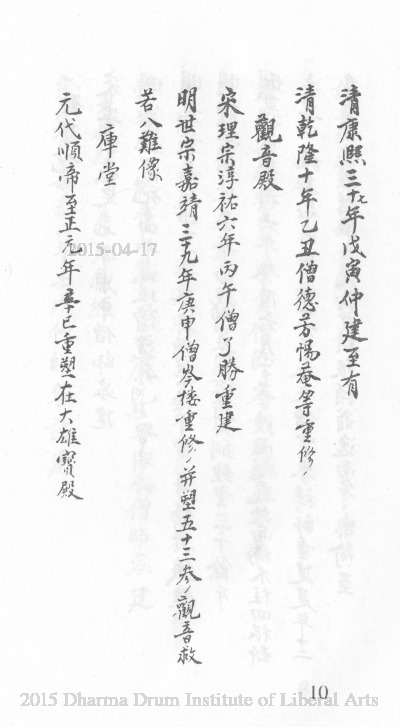 清康熙三十七年戊寅仲建至有
清乾隆十年乙丑僧德芳惕菴等重修、
觀音殿
宋理宗淳祐六年丙午僧了勝重建
明世宗嘉靖三十九年庚申僧岑樓重修、并塑五十三參、觀音救
苦八難像
庫堂
元代順帝至正元年辛巳重塑在大雄寶殿
2015-04-17
10
2015 Dharma Drum Institute of Liberal Arts